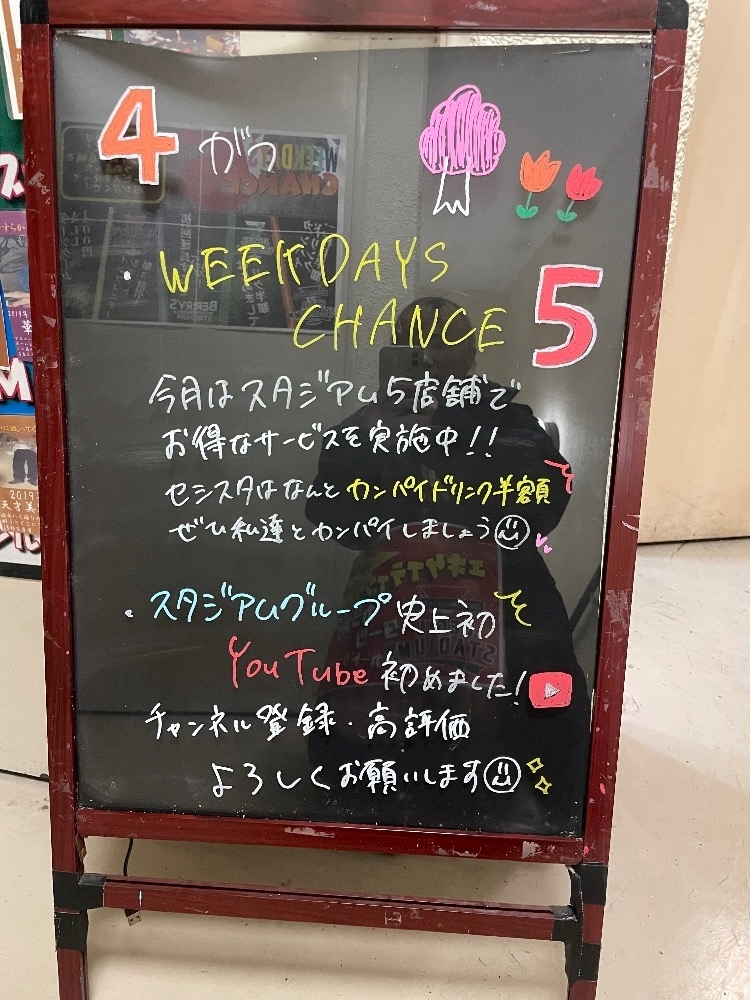 4がつ
・WEEKDAYS
CHANCE 5
今月はスタジアム5店舗で
お得なサービスを実施中!!
セシスタはなんとカンパイドリンク半額
ぜひ私達とカンパイしましょう
・スタジアムグループ史上初
YouTube初めました!
チャンネル登録・高評価
よろしくお願いします
WEEKDAYS
CHANCE
BERRY'S
STADIUM
2019